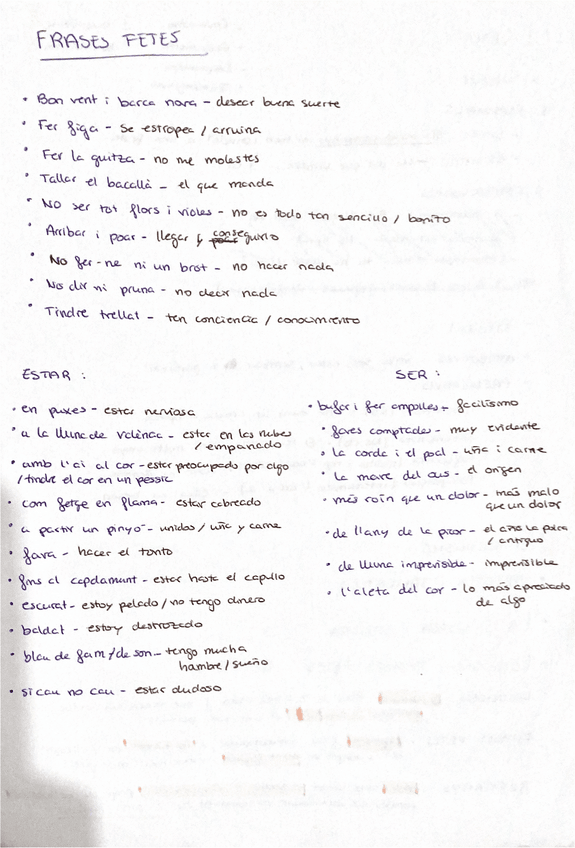 FRASES FETES
• Bon vent i barca nova - desear buena suerte
• Fer figa - se estropea / arruina
• Fer la guitza - no me molestes
• Tallar el bacallà - el que manda
• NO ser tot flors i violes - no es todo tan sencillo / bonito
• Arribar i poar - llegar y conseguirlo
• No fer-ne ni un brot - no hacer nada
• No dir ni pruna - no decir nada
• Tindre trellat - ten conciencia / conocimiento
ESTAR :
• en punxes - estar nerviosa
• a la lluna de València - estar en las nubes
/ empanado
• amb l'ai al cor - estar preocupado por algo
/ tindre el cor en un pessic
• com fetge en flama - estar cabreado
• a partir un pinyó - unidos / uña y carne
• fava - hacer el tonto
• fins al capdamunt - estar hasta el capullo
• escurat - estoy pelado / no tengo dinero
• baldat - estoy destrozado
• blau de fam / de son - tengo mucha
hambre / sueño
• si cau no cau - estar dudoso
SER :
• bufar i fer ampolles - facilísimo
• faves comptades - muy evidente
• la corda i el poal - uña i carne
• la mare dels ous - el origen
• més roïn que un dolor - más malo
que un dolor
• de l'lany de la picor - el año la polca
/ antiguo
• de lluna imprevisible - imprevisible
• l'aleta del cor - lo más apreciado
de algo